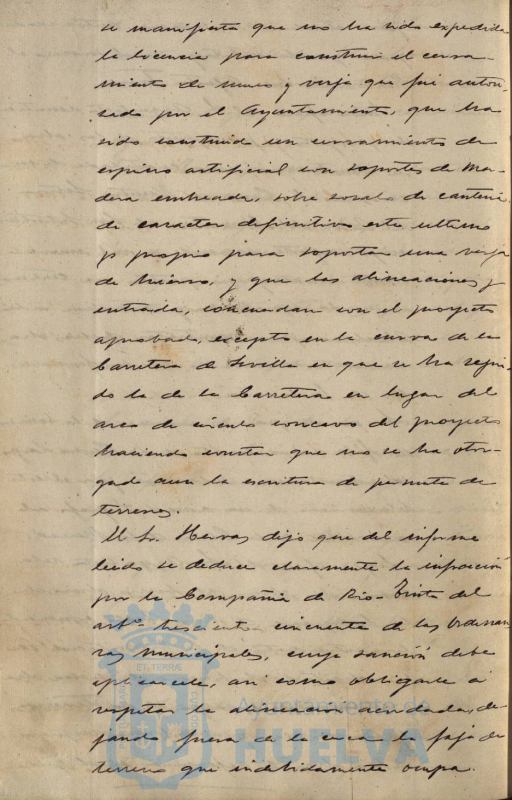 se manifiesta que no ha sido expedida
la licencia para construir el cerra-
miento de muro y verja que fué autori-
zado por el Ayuntamiento, que ha
sido construido un cerramiento de
espino artificial con soportes de ma-
dera embreada, sobre zocalo de cantería
de caracter definitivo este ultimo
y propio para soportar una verja
de hierro, y que las alineaciones y
entrada, concuerdan con el proyecto
aprobado, excepto en la curva de la
Carretera de Sevilla en que se ha segui-
do la de la Carretera en lugar del
arco de circulo concavo del proyecto
haciendo constar que no se ha otor-
gado aun la escritura de permuta de
terrenos.
El Sr. Hervas dijo que del informe
leido se deduce claramente la infracción
por la Compañia de Rio-Tinto del
arto. trescientos cincuenta de las Ordenan-
zas municipales, cuya sanción debe
aplicarsele, así como obligarle á
respetar la alineacion acordada, de-
jando fuera de la cerca la faja de
terreno que indebidamente ocupa.
Ayuntamiento de
HUELVA